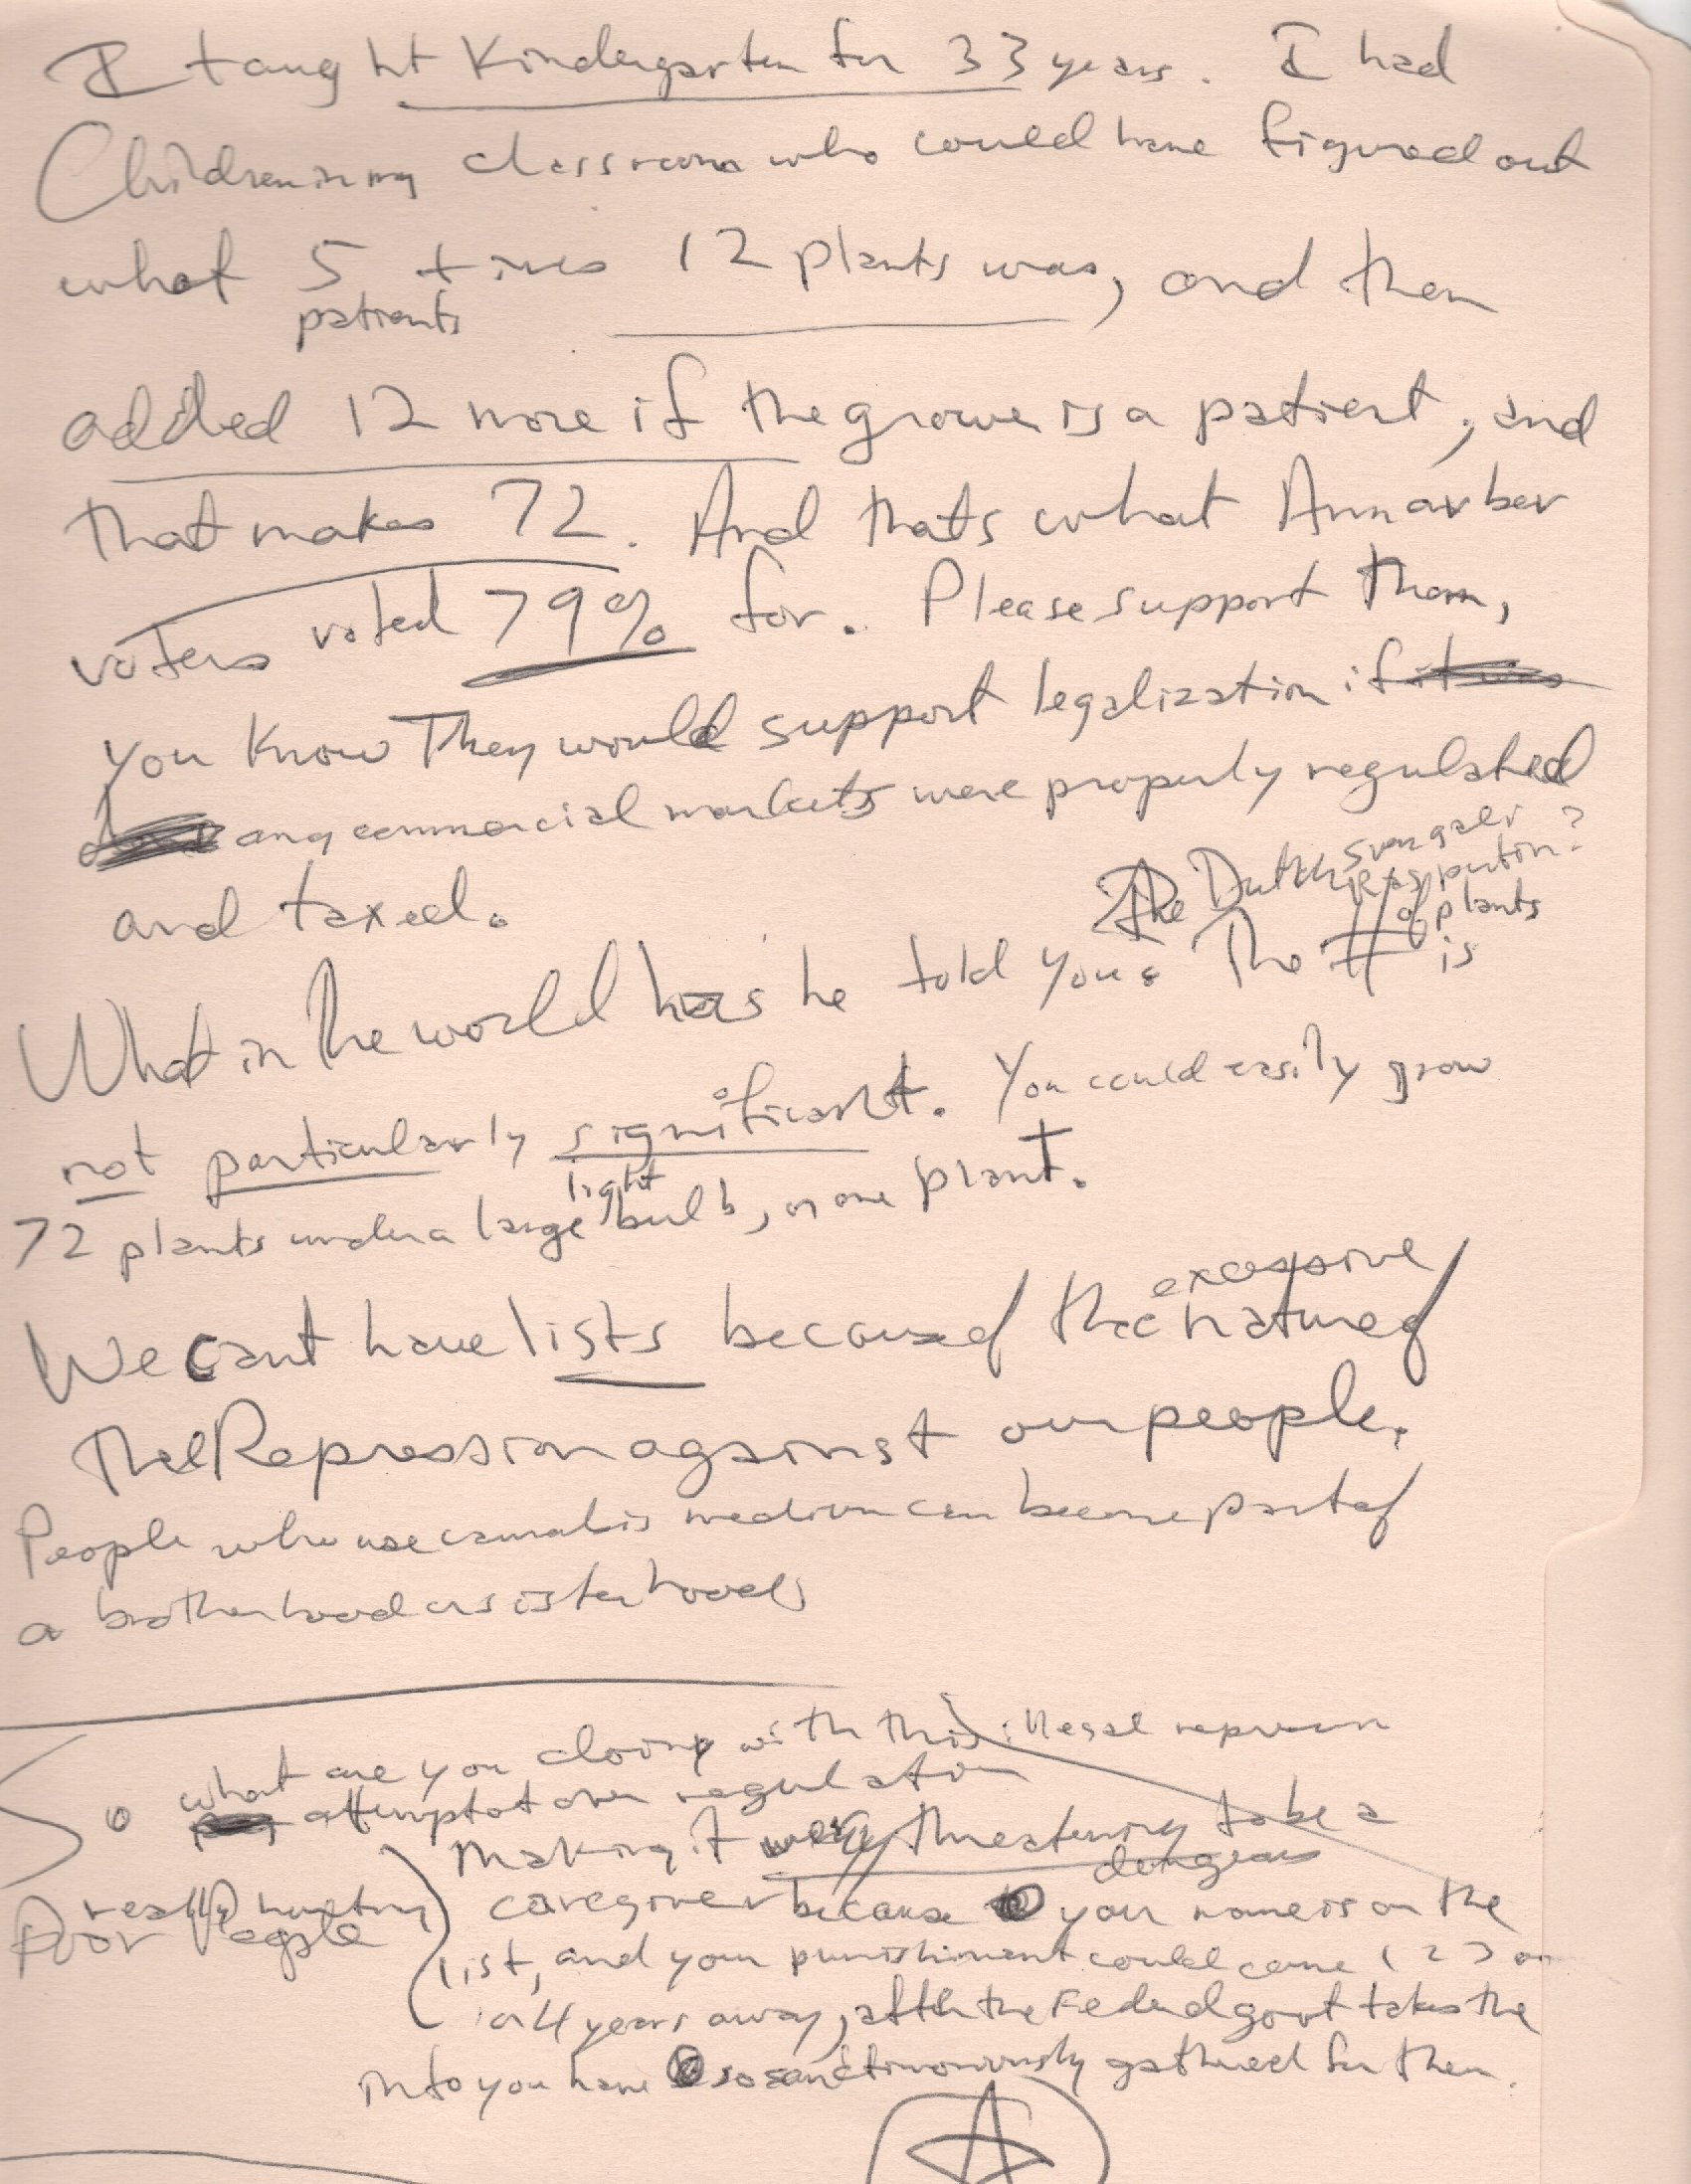 I taught Kindergarten for 33 years. I had
Children in my classroom who could have figured out
what 5 times 12 plants was, and then
patients
added 12 more if the grower is a patient, and
that makes 72. And thats what Ann arbor
voters voted 79% for. Please support them,
you know They would support legalization if
any commercial markets were properly regulated
and taxed.
The Dutch Svengali
Rasputin?
What in the world has he told you? The # of plants is
not particularly significant. You could easily grow
72 plants under a large light bulb, or one plant.
We cant have lists because of the excessive nature of
The Repression against our people.
People who use cannabis medicine can become part of
a brotherhood or sisterhood
So what are you doing with this illegal repression
attempt at over regulation
really hurting
Poor People
Making it very threatening to be a
caregiver because dangerous your name is on the
list, and your punishment could come 1 2 3 or
or 4 years away, after the Federal govt takes the
info you have so sanctimoniously gathered for them.